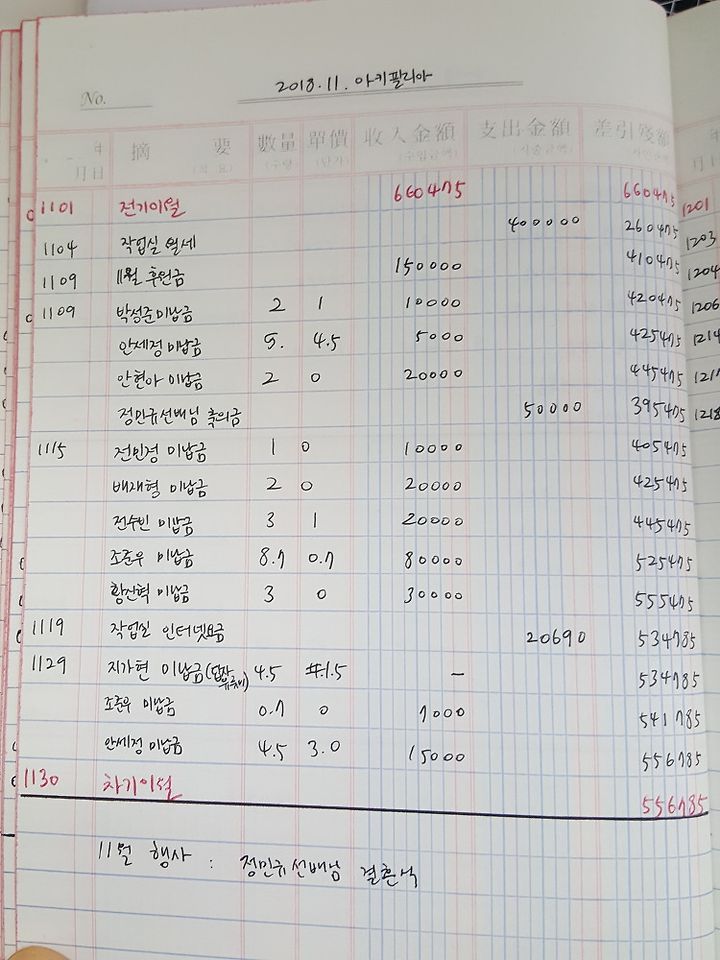 2018.11. 아카펠리아
No.
年 月日 摘 要 數量 單價 收入金額 支出金額 差引殘額
(적 요) (수량) (단가) (수입금액) (지출금액)
1101 전기이월 660475 660475
1104 작업실 월세 400000 260475
1109 11월 후원금 150000 410475
1109 박성준 미납금 2 1 10000 420475
안세정 미납금 5. 4.5 5000 425475
안현아 미납금 2 0 20000 445475
정민규선배님 축의금 50000 395475
1115 전민정 미납금 1 0 10000 405475
배재형 미납금 2 0 20000 425475
전수빈 미납금 3 1 20000 445475
조준우 미납금 8.7 0.7 80000 525475
황산혁 미납금 3 0 30000 555475
1119 작업실 인터넷요금 20690 534785
1129 지가현 미납금 4.5 1.5 - 534785
조준우 미납금 0.7 0 7000 541785
안세정 미납금 4.5 3.0 15000 556785
1130 차기이월 556785
11월 행사 : 정민규선배님 결혼식
1201
1203
1204
1206
1214
1217
1218